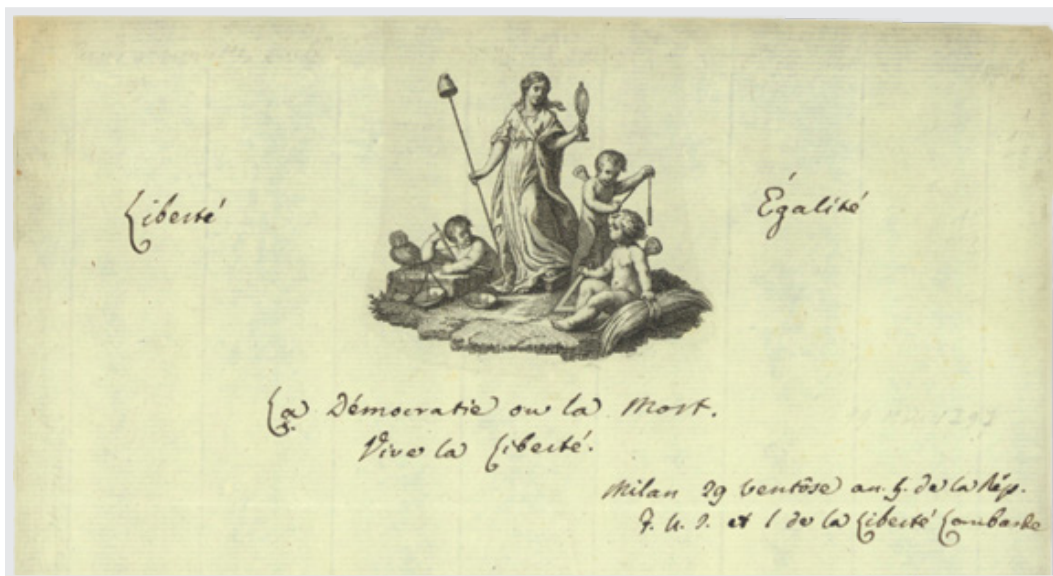 Liberté
Égalité
La Démocratie ou la Mort.
Vive la Liberté.
Milan 29 ventôse an 5. de la Rép.
F. U. I. et 1 de la Liberté Lombarde